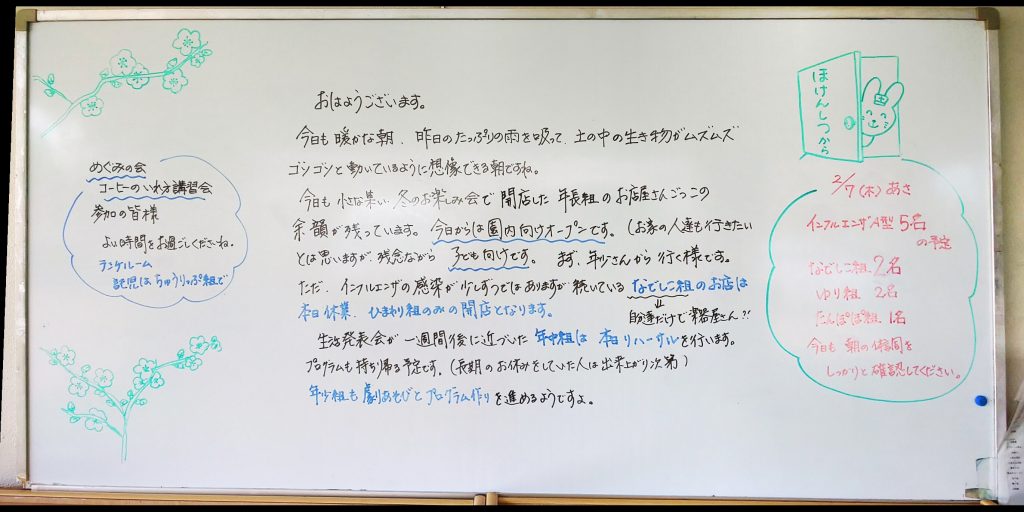 めぐみの会
コーヒーのいれ方講習会
参加の皆様
よい時間をお過ごしくださいね。
ランチルーム
託児はちゅうりっぷ組で
おはようございます。
今日も暖かな朝、昨日のたっぷりの雨を吸って、土の中の生き物がムズムズ
ゴソゴソと動いているように想像できる朝ですね。
今日も小さな集い、冬のお楽しみ会で開店した年長組のお店屋さんごっこの
余韻が残っています。今日からは園内向けオープンです。(お家の人達も行きたい
とは思いますが、残念ながら子ども向けです。まず、年少さんから行く様です。
ただ、インフルエンザの感染が少しずつではありますが続いているなでしこ組のお店は
本日休業、ひまわり組のみの開店となります。
自分達だけで楽器屋さん?!
生活発表会が一週間後に近づいた年中組は本日リハーサルを行います。
プログラムも持ち帰る予定です。(長期のお休みをしていた人は出来上がり次第)
年少組も劇あそびとプログラム作りを進めるようですよ。
ほけんしつから
2/7(木)あさ
インフルエンザA型 5名
の予定
なでしこ組 2名
ゆり組 2名
たんぽぽ組 1名
今日も朝の体調を
しっかりと確認してください。